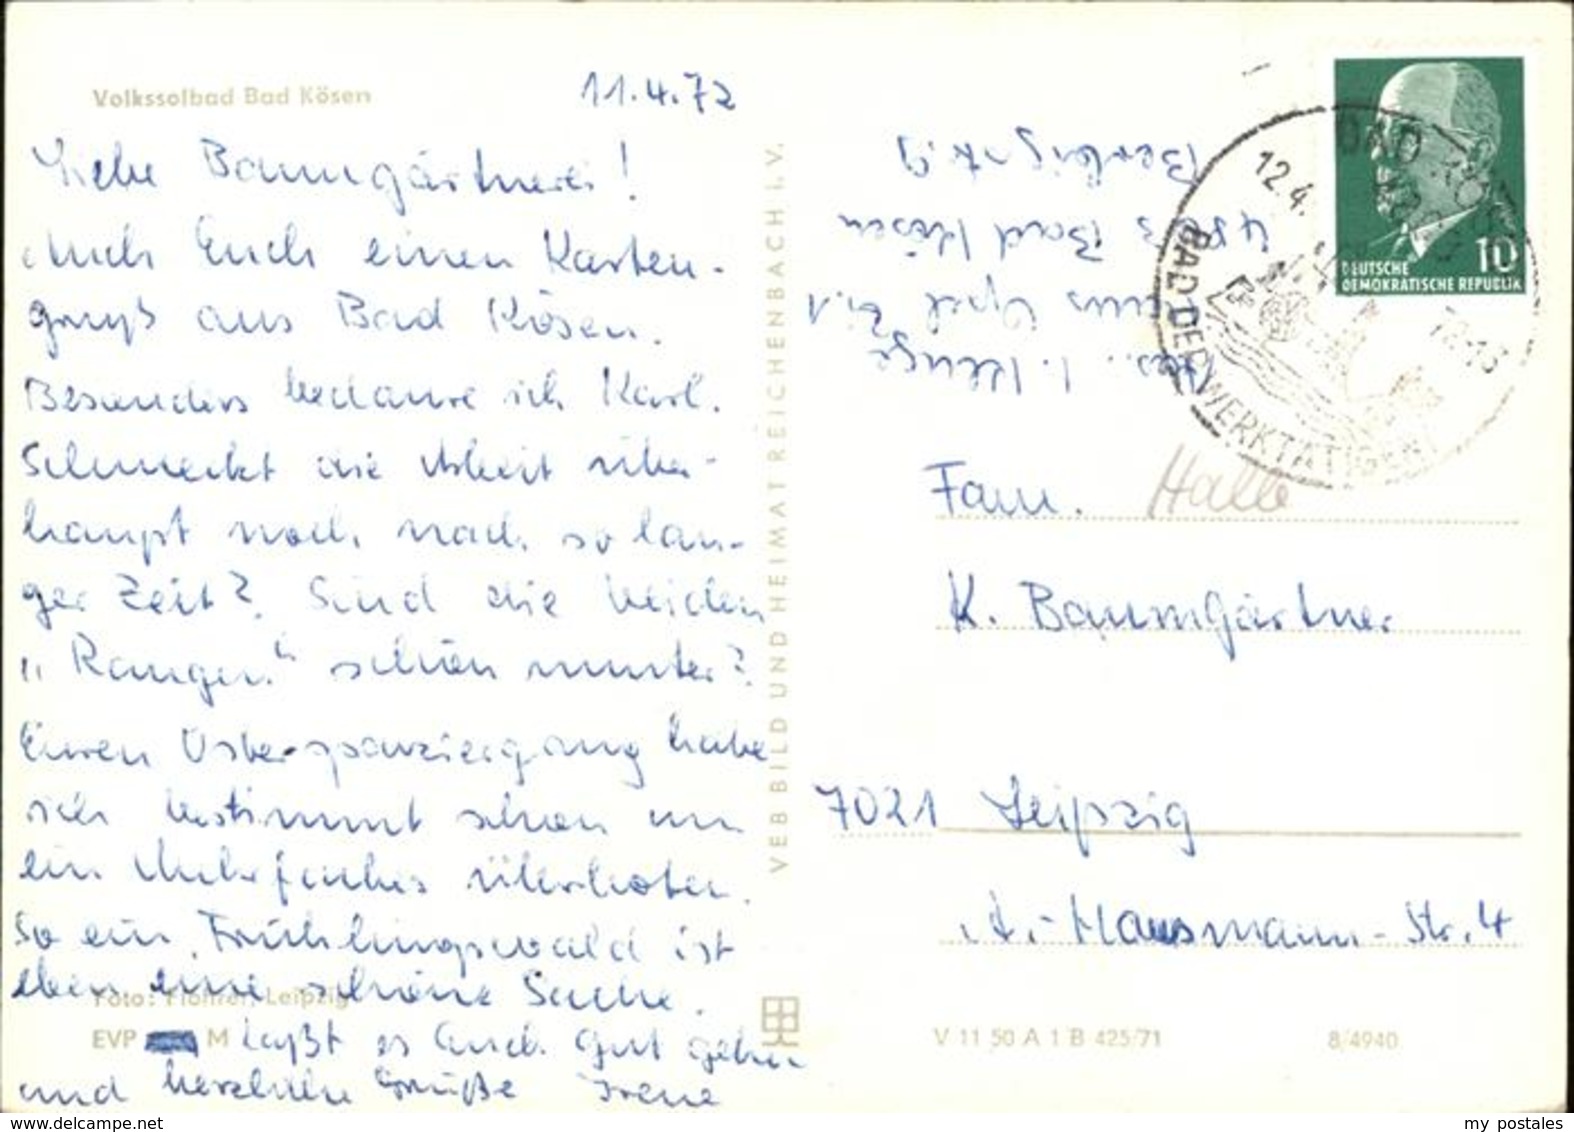 Volkssolbad Bad Kösen
11.4.72
Liebe Baumgärtnerei!
Auch Euch einen Karten-
gruß aus Bad Kösen.
Besonders bedaure ich Karl.
Schmeckt die Arbeit über-
haupt noch nach so lan-
ger Zeit? Sind die beiden
„Rangen" schön munter?
Euren Osterspaziergang habt
ihr bestimmt schon um
ein Mehrfaches überboten.
So ein Frühlingswald ist
eben eine schöne Sache.
Foto: Leipzig
EVP M Laßt es Euch gut gehen
und herzliche Grüße Irene
VEB BILD UND HEIMAT REICHENBACH I. V.
I. Kluge
Bad Kösen
DEUTSCHE
DEMOKRATISCHE REPUBLIK
10
12.4.
BAD DER WERKTÄTIGEN
Fam. Halle
K. Baumgärtner
7021 Leipzig
A.-Hausmann-Str. 4
V 11 50 A 1 B 425/71
8/4940
www.delcampe.net
my postales